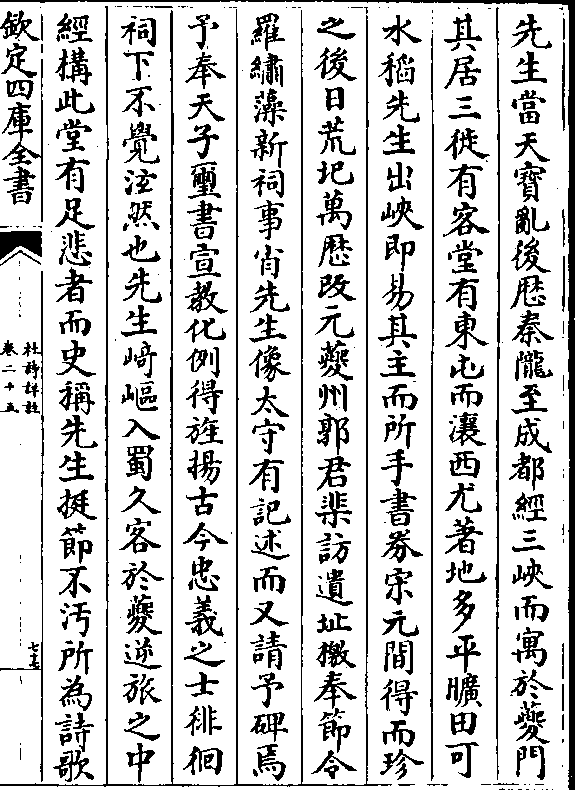 先生當天寳亂後歴秦隴至成都經三峽而寓於夔門
其居三徙有客堂有東屯而瀼西尤著地多平曠田可
水稻先生出峽即易其主而所手書券宋元間得而珍
之後日荒圯萬歴改元夔州郭君棐訪遺址檄奉節令
羅繡藻新祠事肖先生像太守有記述而又請予碑焉
予奉天子璽書宣教化例得旌揚古今忠義之士徘徊
祠下不覺泫然也先生﨑嶇入蜀久客於夔逆旅之中
經構此堂有足悲者而史稱先生挺節不汚所為詩歌
欽定四庫全書
杜詩詳註
卷二十五
七十七